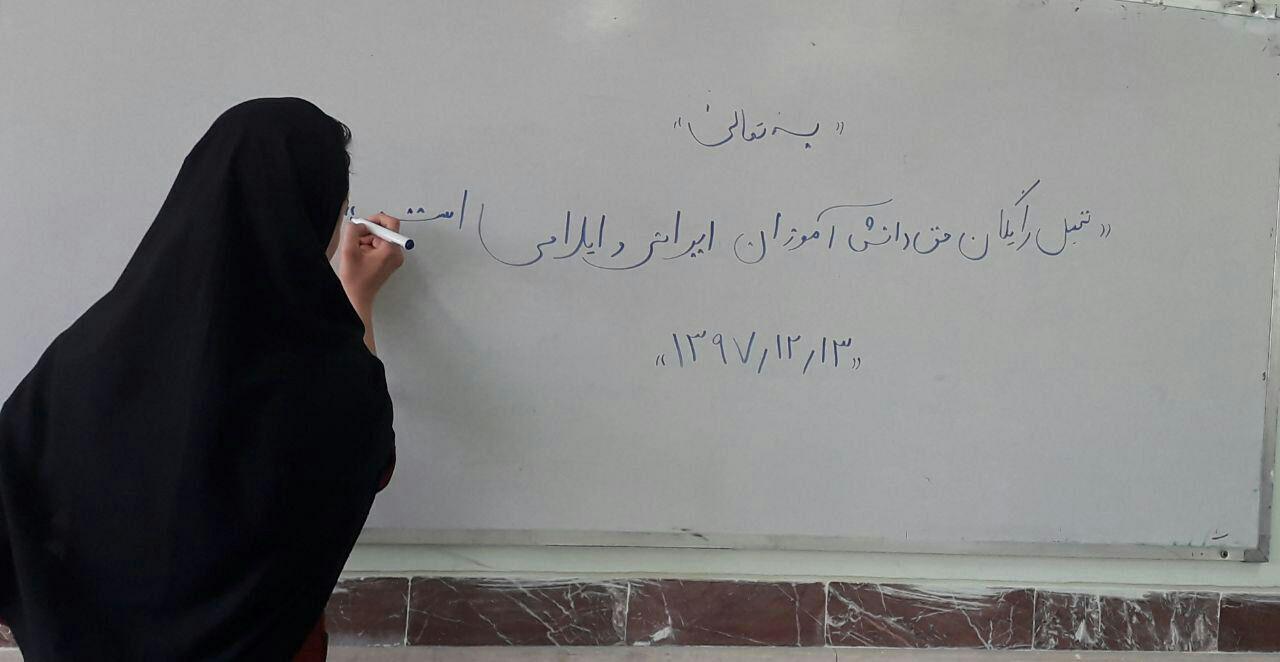 «بسمه تعالی»
«تحصیل رایگان حق دانش آموزان ایرانی و ایلامی است»
«۱۳۹۷/۱۲/۱۳»